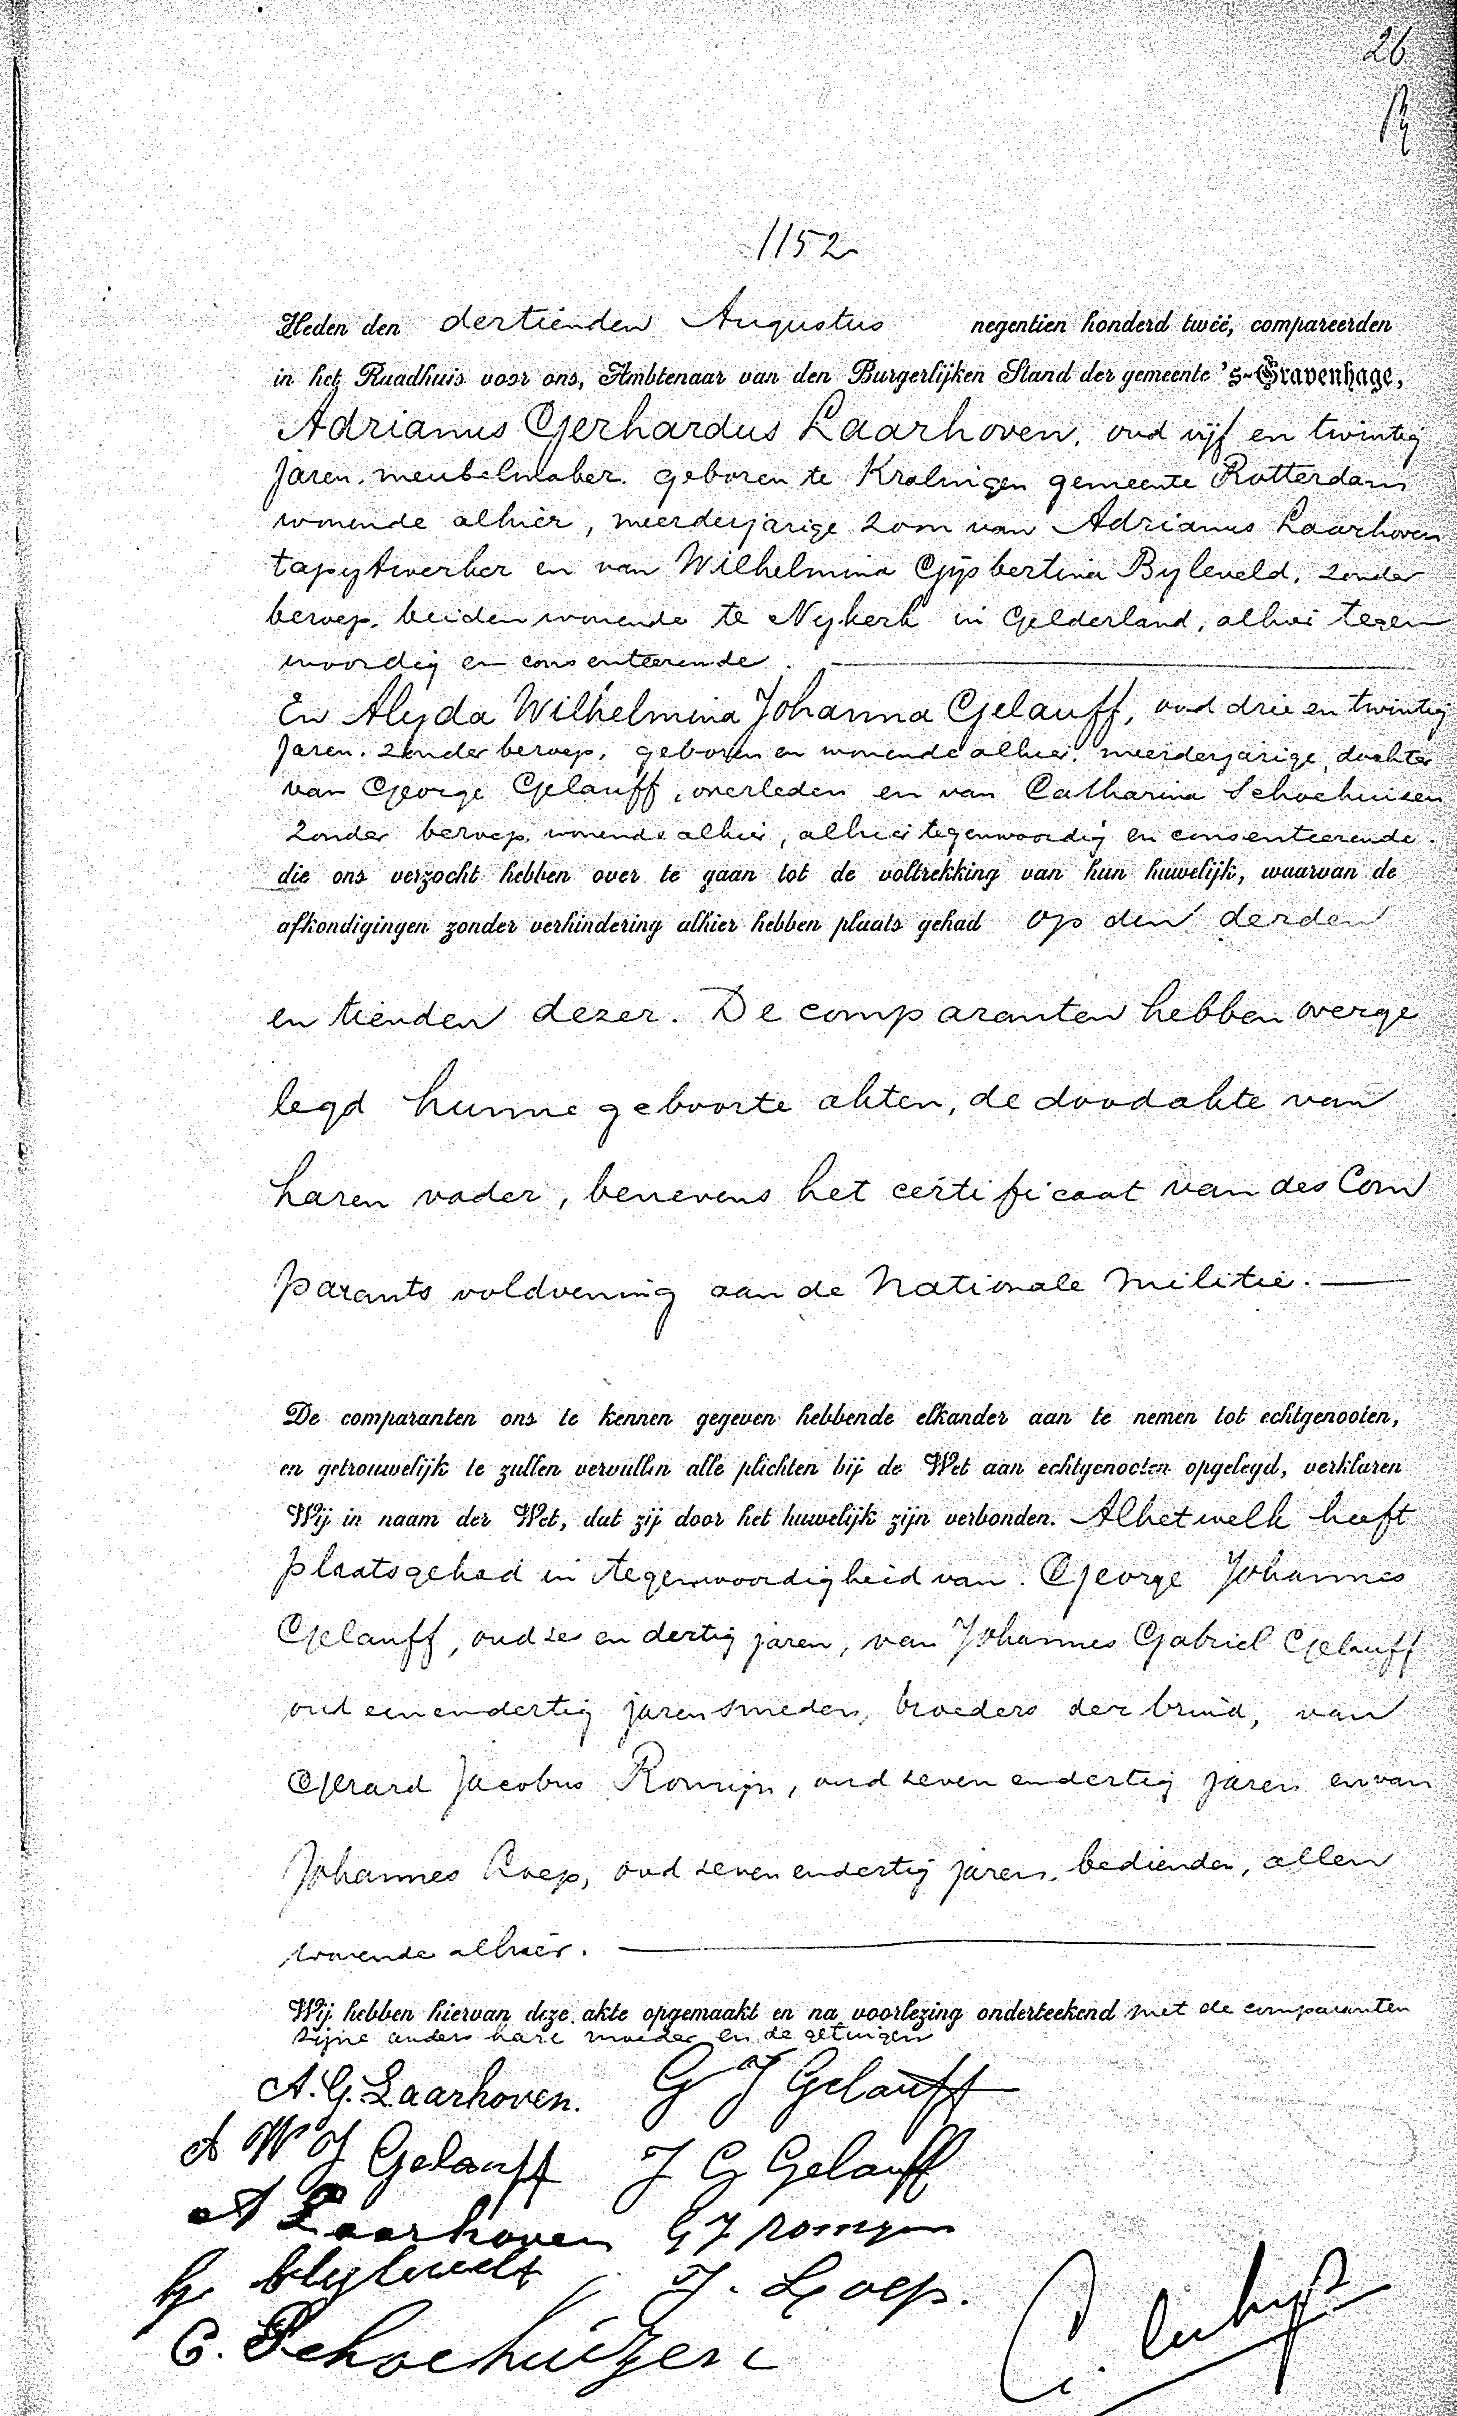 26
1152
Heden den dertienden Augustus negentien honderd twee, compareerden
in het Raadhuis voor ons, Ambtenaar van den Burgerlijken Stand der gemeente 's-Gravenhage,
Adrianus Gerhardus Laarhoven, oud vijf en twintig
jaren, meubelmaker, geboren te Kralingen gemeente Rotterdam
wonende alhier, meerderjarige zoon van Adrianus Laarhoven
tapytwerker en van Wilhelmina Gijsbertina Byleveld, zonder
beroep, beiden wonende te Nykerk in Gelderland, alhier tegen
woordig en consenteerende.
En Alyda Wilhelmina Johanna Gelauff, oud drie en twintig
jaren, zonder beroep, geboren en wonende alhier, meerderjarige, dochter
van George Gelauff, overleden en van Catharina Schoehuizen
zonder beroep, wonende alhier, alhier tegenwoordig en consenteerende.
die ons verzocht hebben over te gaan tot de voltrekking van hun huwelijk, waarvan de
afkondigingen zonder verhindering alhier hebben plaats gehad op den derden
en tienden dezer. De comparanten hebben overge
legd hunne geboorte akten, de doodakte van
haren vader, benevens het certificaat van des Com
parants voldoening aan de Nationale Militie.
De comparanten ons te kennen gegeven hebbende elkander aan te nemen tot echtgenooten,
en getrouwelijk te zullen vervullen alle plichten bij de Wet aan echtgenooten opgelegd, verklaren
Wij in naam der Wet, dat zij door het huwelijk zijn verbonden. Al hetwelk heeft
plaatsgehad in tegenwoordigheid van George Johannes
Gelauff, oud zes en dertig jaren, van Johannes Gabriel Gelauff
oud eenendertig jaren smeden, broeders der bruid, van
Gerard Jacobus Romijn, oud zeven en dertig jaren en van
Johannes Loep, oud zeven endertig jaren, bedienden, allen
wonende alhier.
Wij hebben hiervan deze akte opgemaakt en na voorlezing onderteekend met de comparanten
zijne ouders hare moeder en de getuigen
A. G. Laarhoven. G J Gelauff
A W J Gelauff J G Gelauff
A Laarhoven G J Romijn
Bijleveld J. Loep.
C. Schoehuizen